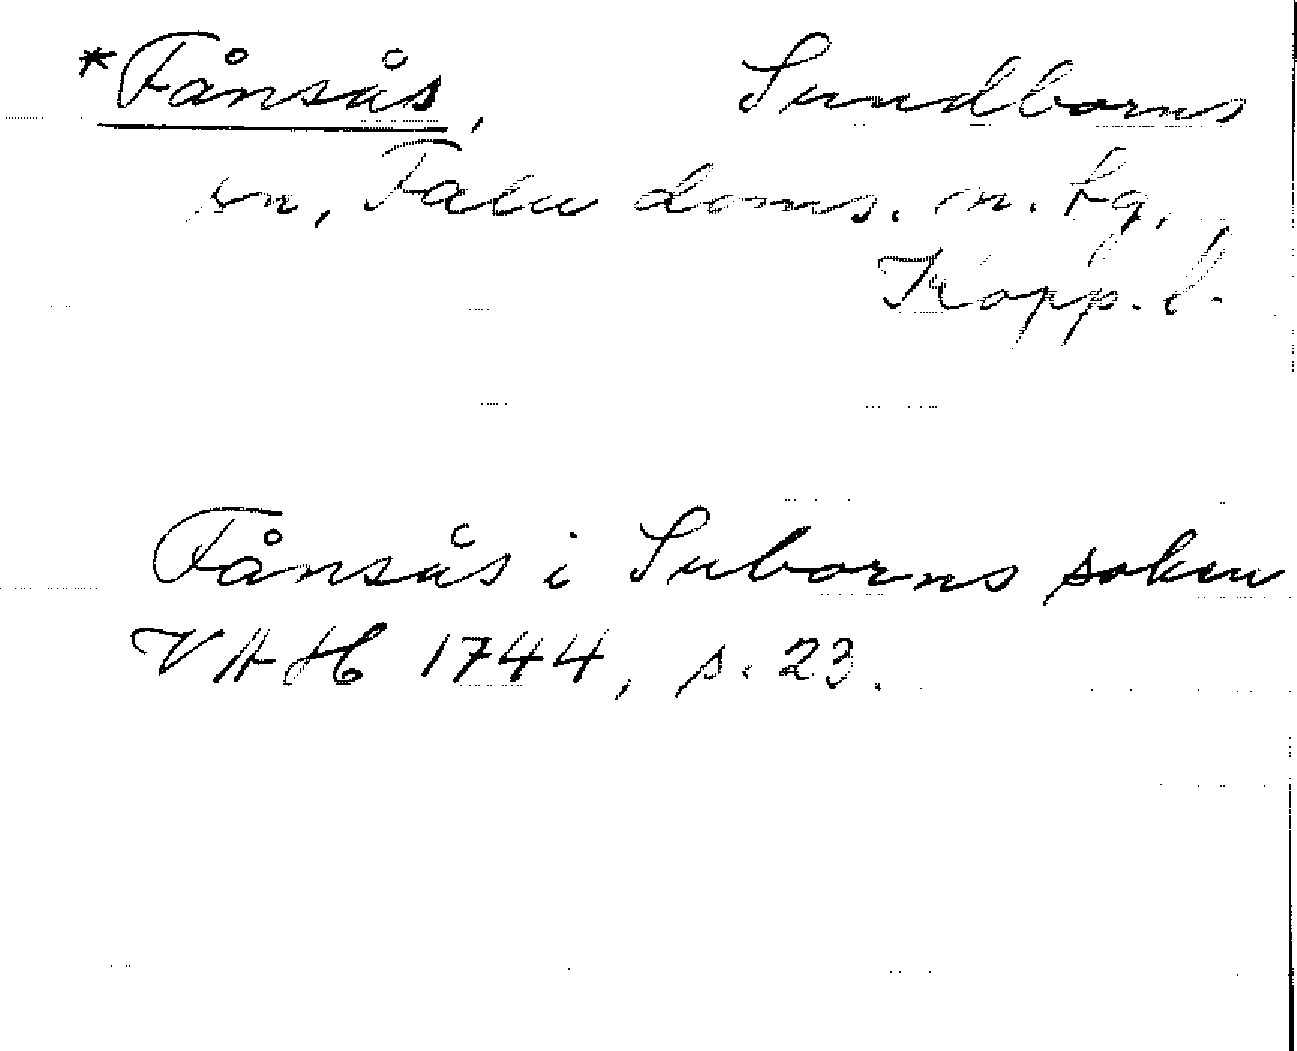 *Fånsås, Sundborns
sn, Falu doms. n. tg,
Kopp. l.
Fånsås i Suborns soken
VAH 1744, s. 23.